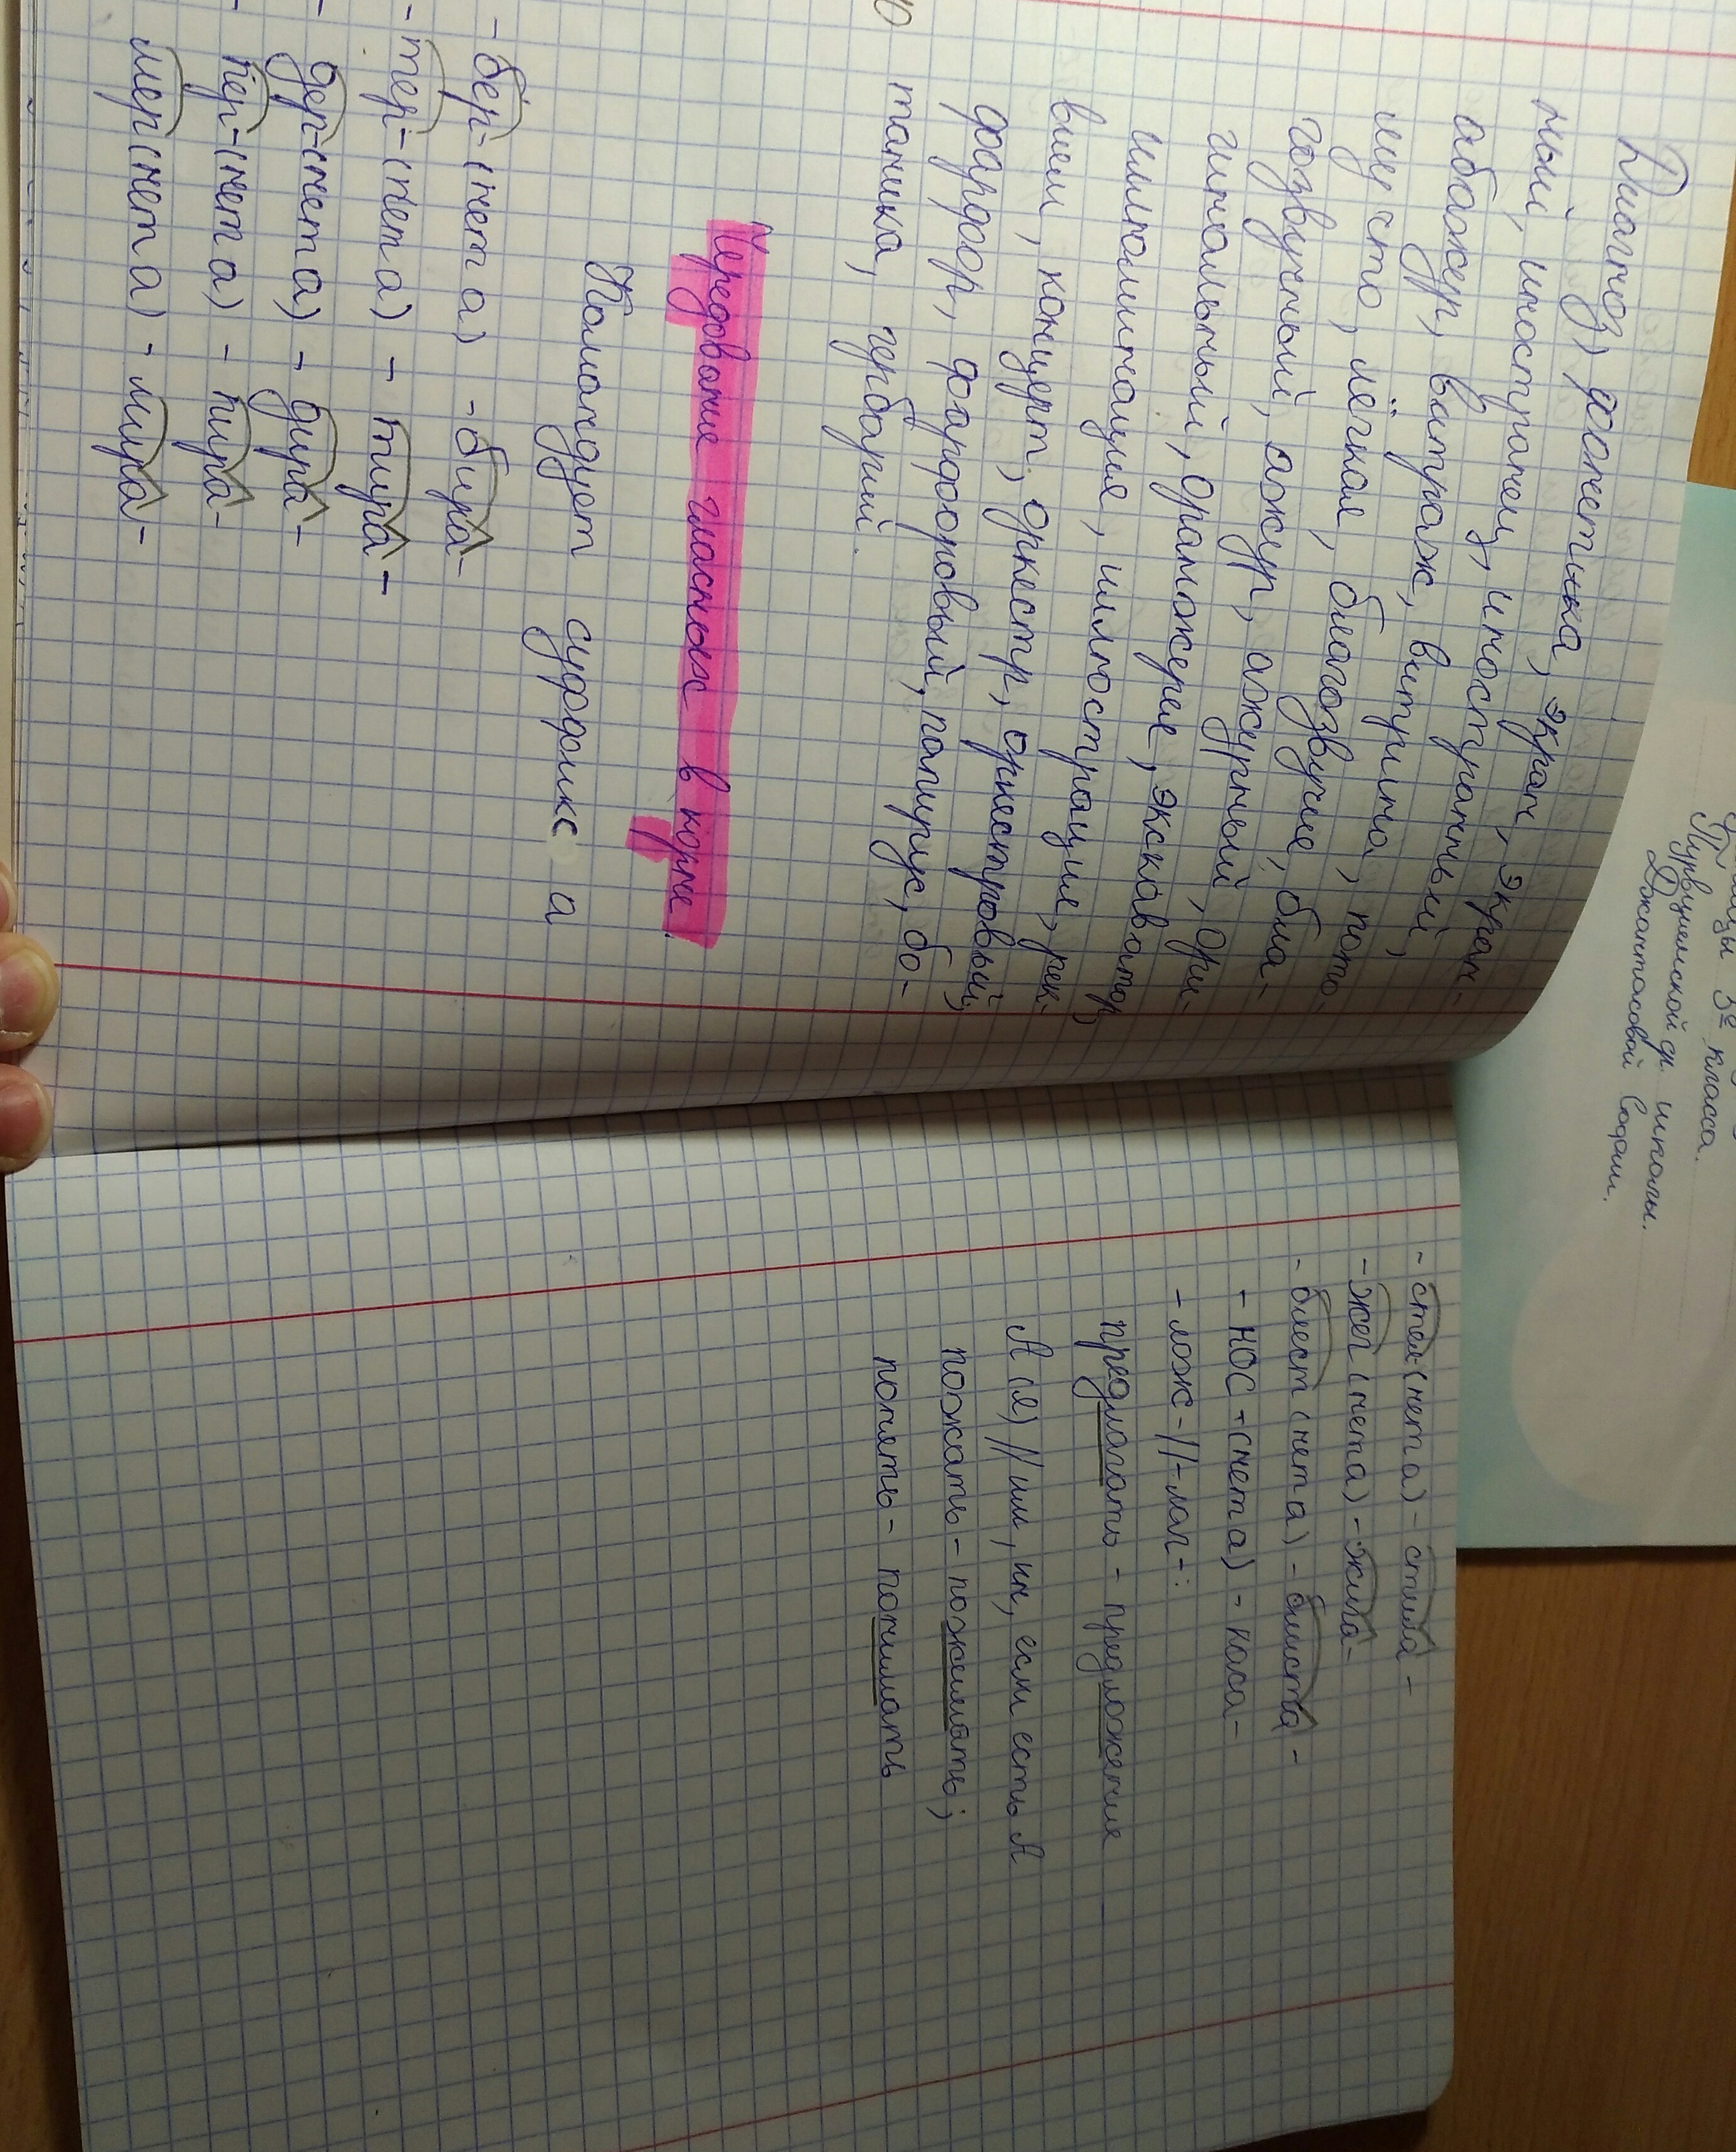 Диагноз, фонетика, экран, экран-
ный, иностранец, иностранный,
абажур, витраж, витрина, ното
мусто, лёгкая, благозвучие, бла-
гозвучный, ажур, ажурный, ори-
гинальный, оранжерея, экскаватор,
иллюминация, иллюстрация, рек-
вием, концерт, оркестр, оркестровый,
фарфор, фарфоровый, папирус, бо-
таника, гербарий.
Чередование гласных в корне.
Командует суффикс а
-бер-(нет а) -бира-
-тер-(нет а) - тира-
-дер-(нет а) - дира-
-пер-(нет а) - пира-
-мер(нет а) - мира-
-стел-(нет а) - стила-
-жег(нет а) - жига-
-блест(нет а) - блиста-
-НОС-(нет а) - каса-
-лож-//-лаг-:
предлагать - предложение
А (я) // им, ин, если есть А
пожать - пожимать;
понять - понимать
5е класса.
Пирвуцемской ф. школы.